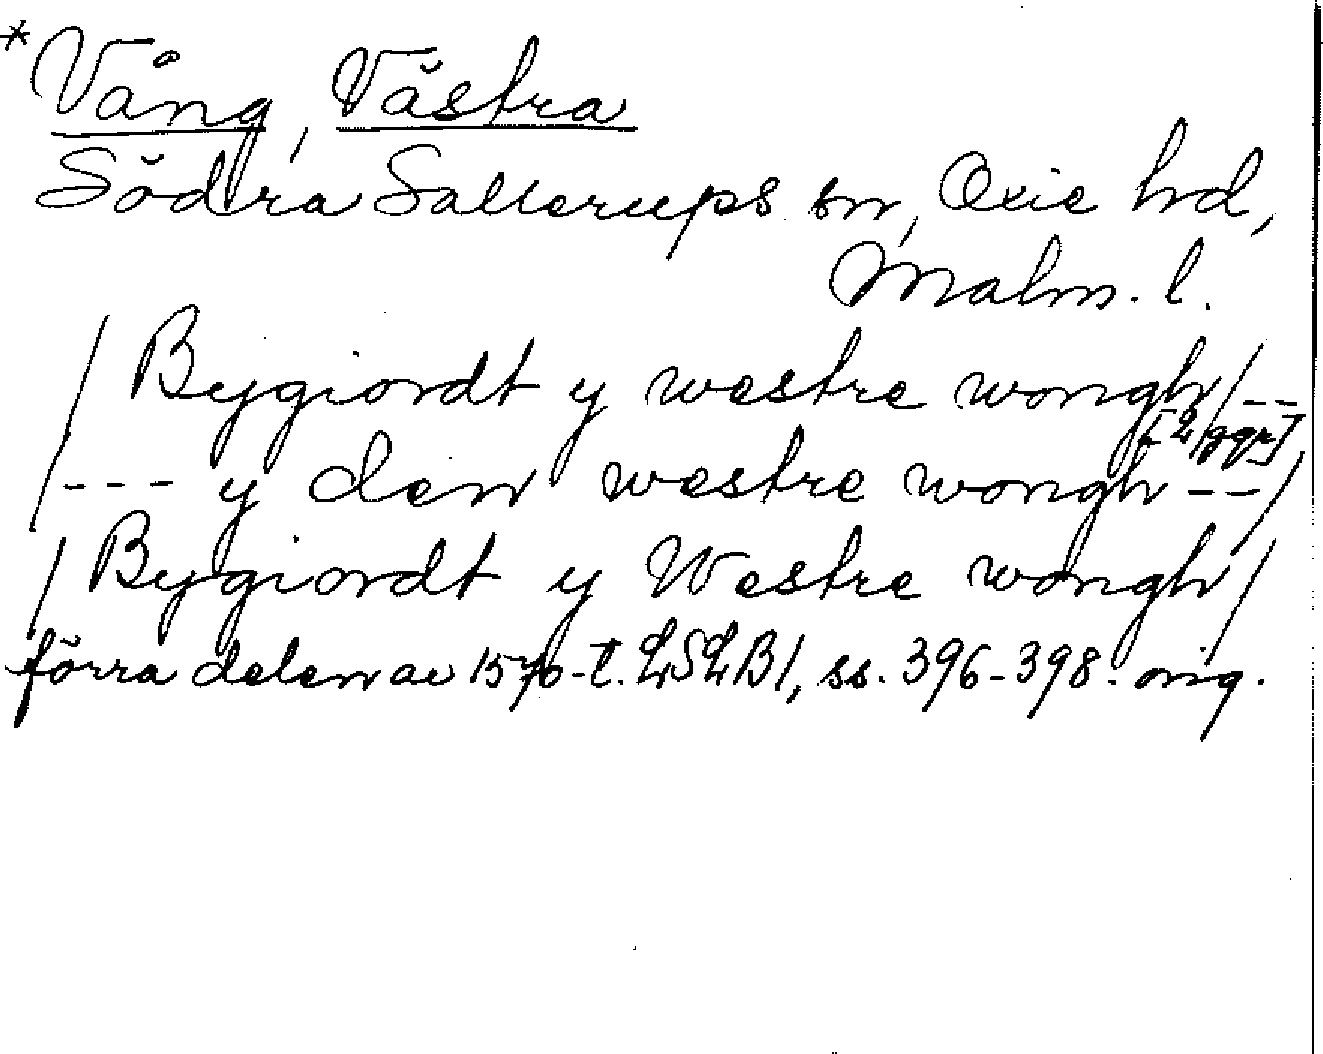 *Vång, Västra
Södra Sallerups sn, Oxie hd,
Malm. l.
/Bygiordt y westre wongh/--
[2 ggr],
/--- y den westre wongh --/
/Bygiordt y Westre wongh/
förra delen av 1570-t. LSLB1, ss. 396-398. orig.